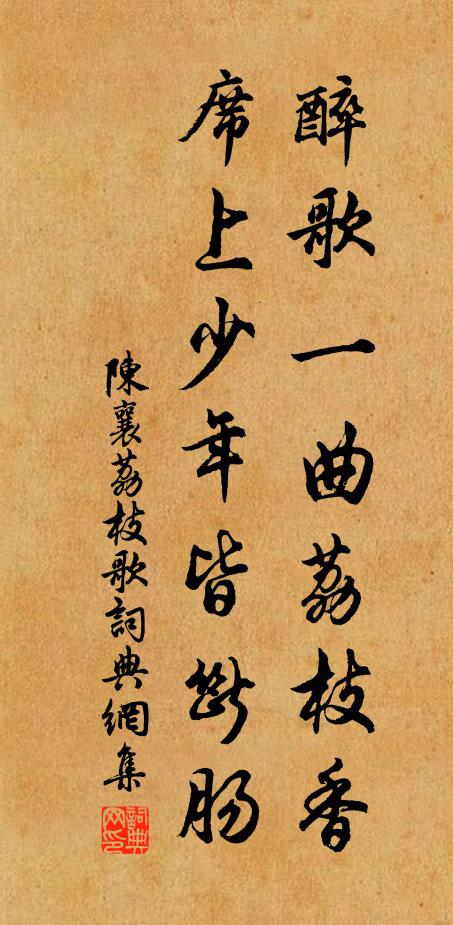 醉歌一曲荔枝香
席上少年皆斷肠
陳襄荔枝歌詞典網集
詞典网印